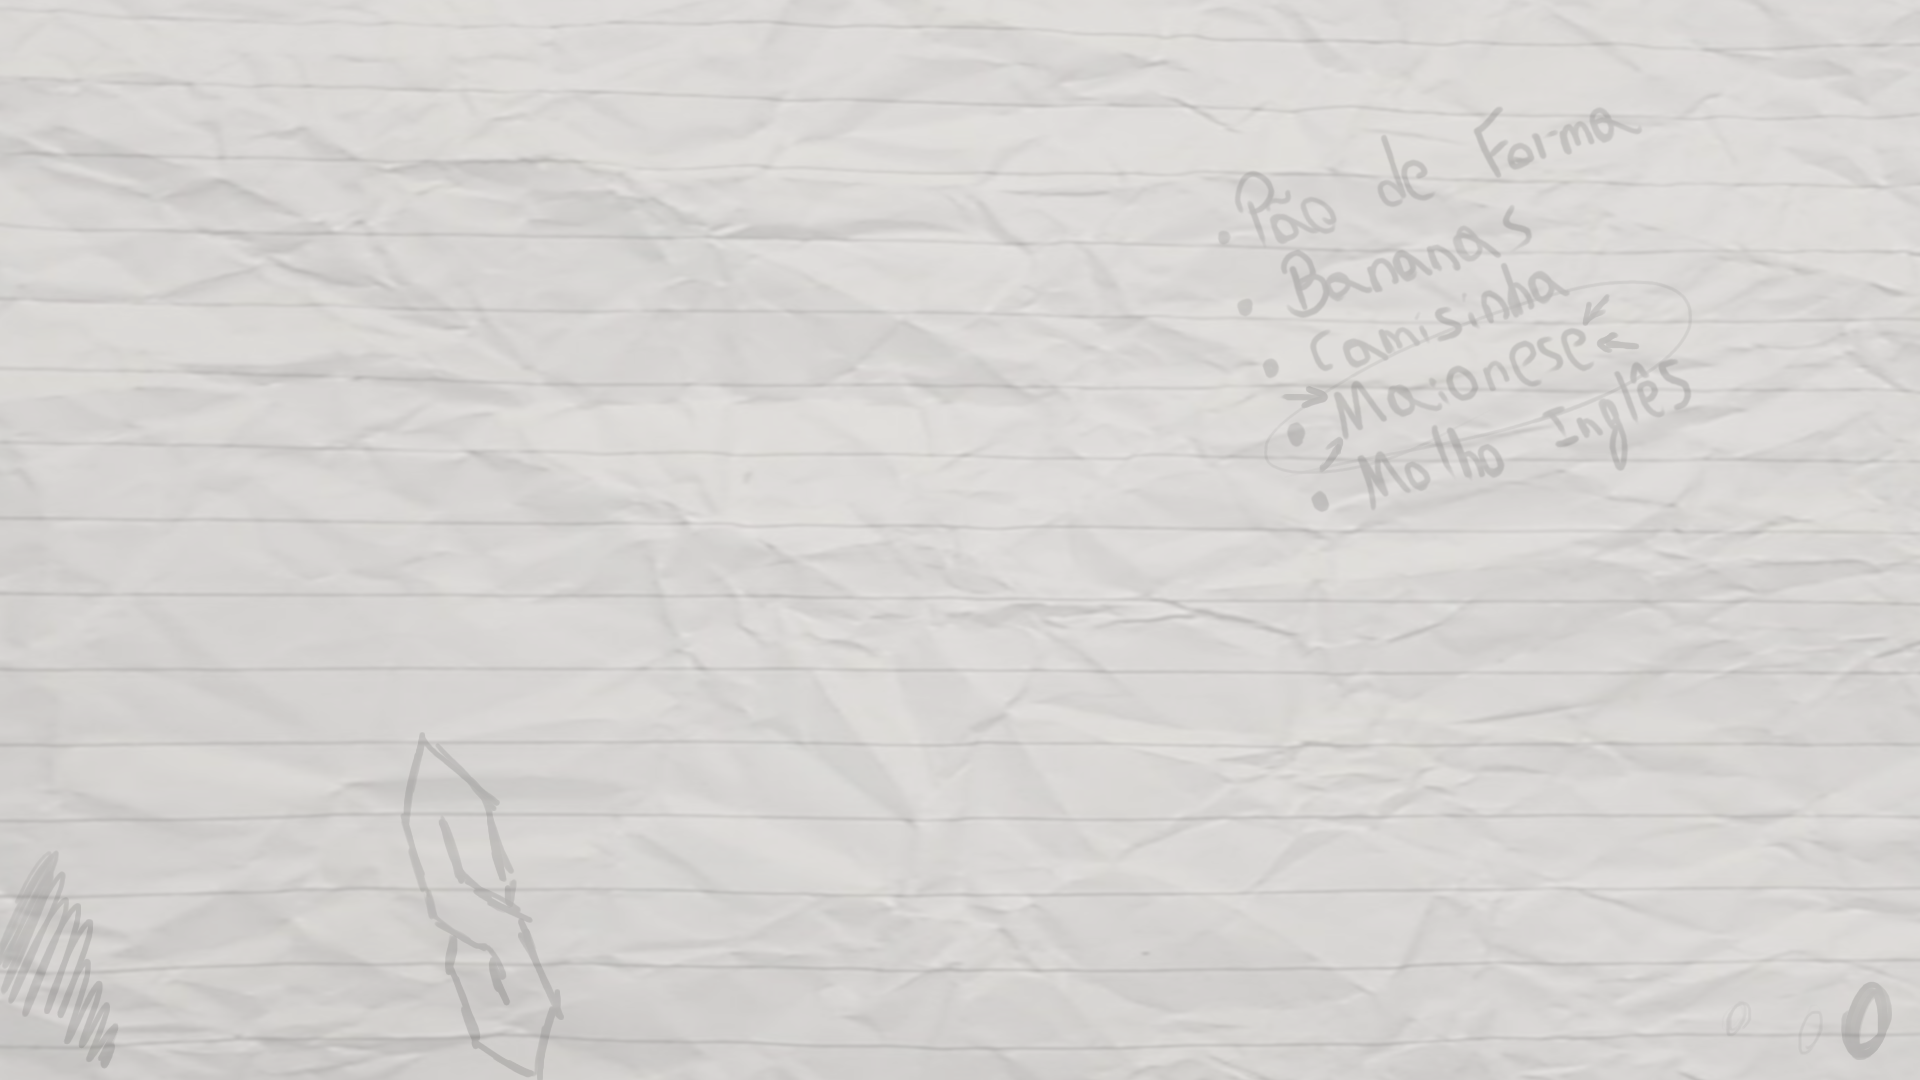 • Pão de Forma
• Bananas
• Camisinha
• Maionese
• Molho Inglês
0 0 0